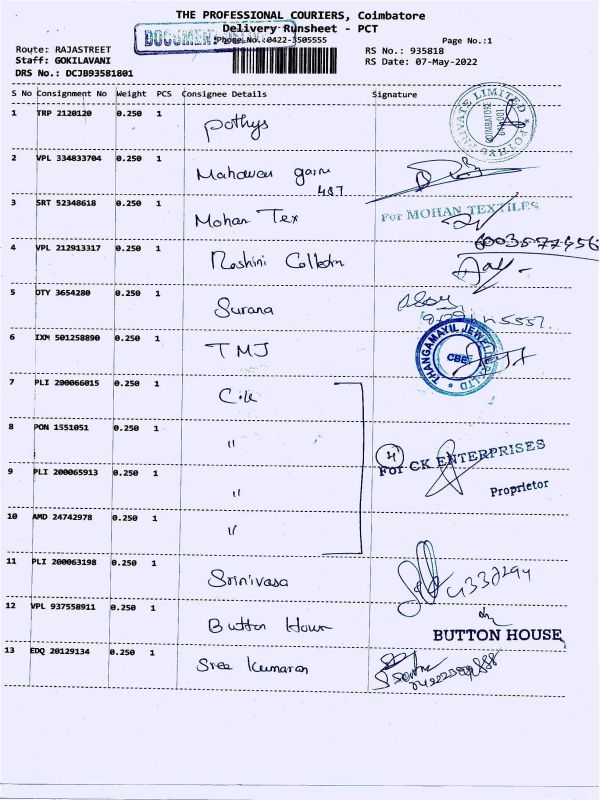 THE PROFESSIONAL COURIERS, Coimbatore
Delivery Runsheet - PCT
Phone No.:0422-3505555 Page No.:1
Route: RAJASTREET RS No.: 935818
Staff: GOKILAVANI RS Date: 07-May-2022
DRS No.: DCJB93581801
S No Consignment No Weight PCS Consignee Details Signature
1 TRP 2120120 0.250 1 Pothys
2 VPL 334833704 0.250 1
487
3 SRT 52348618 0.250 1 Mohan Tex For MOHAN TEXTILES
4 VPL 212913317 0.250 1
5 DTY 3654280 0.250 1 Surana
6 IXM 501258890 0.250 1 TMJ THANGAMAYIL CBE
7 PLI 200066015 0.250 1
8 PON 1551051 0.250 1 "
For CK ENTERPRISES
9 PLI 200065913 0.250 1 "
Proprietor
10 AMD 24742978 0.250 1 "
11 PLI 200063198 0.250 1 Srinivasa
12 VPL 937558911 0.250 1 Button House
BUTTON HOUSE
13 EDQ 20129134 0.250 1 Sree Kumaran